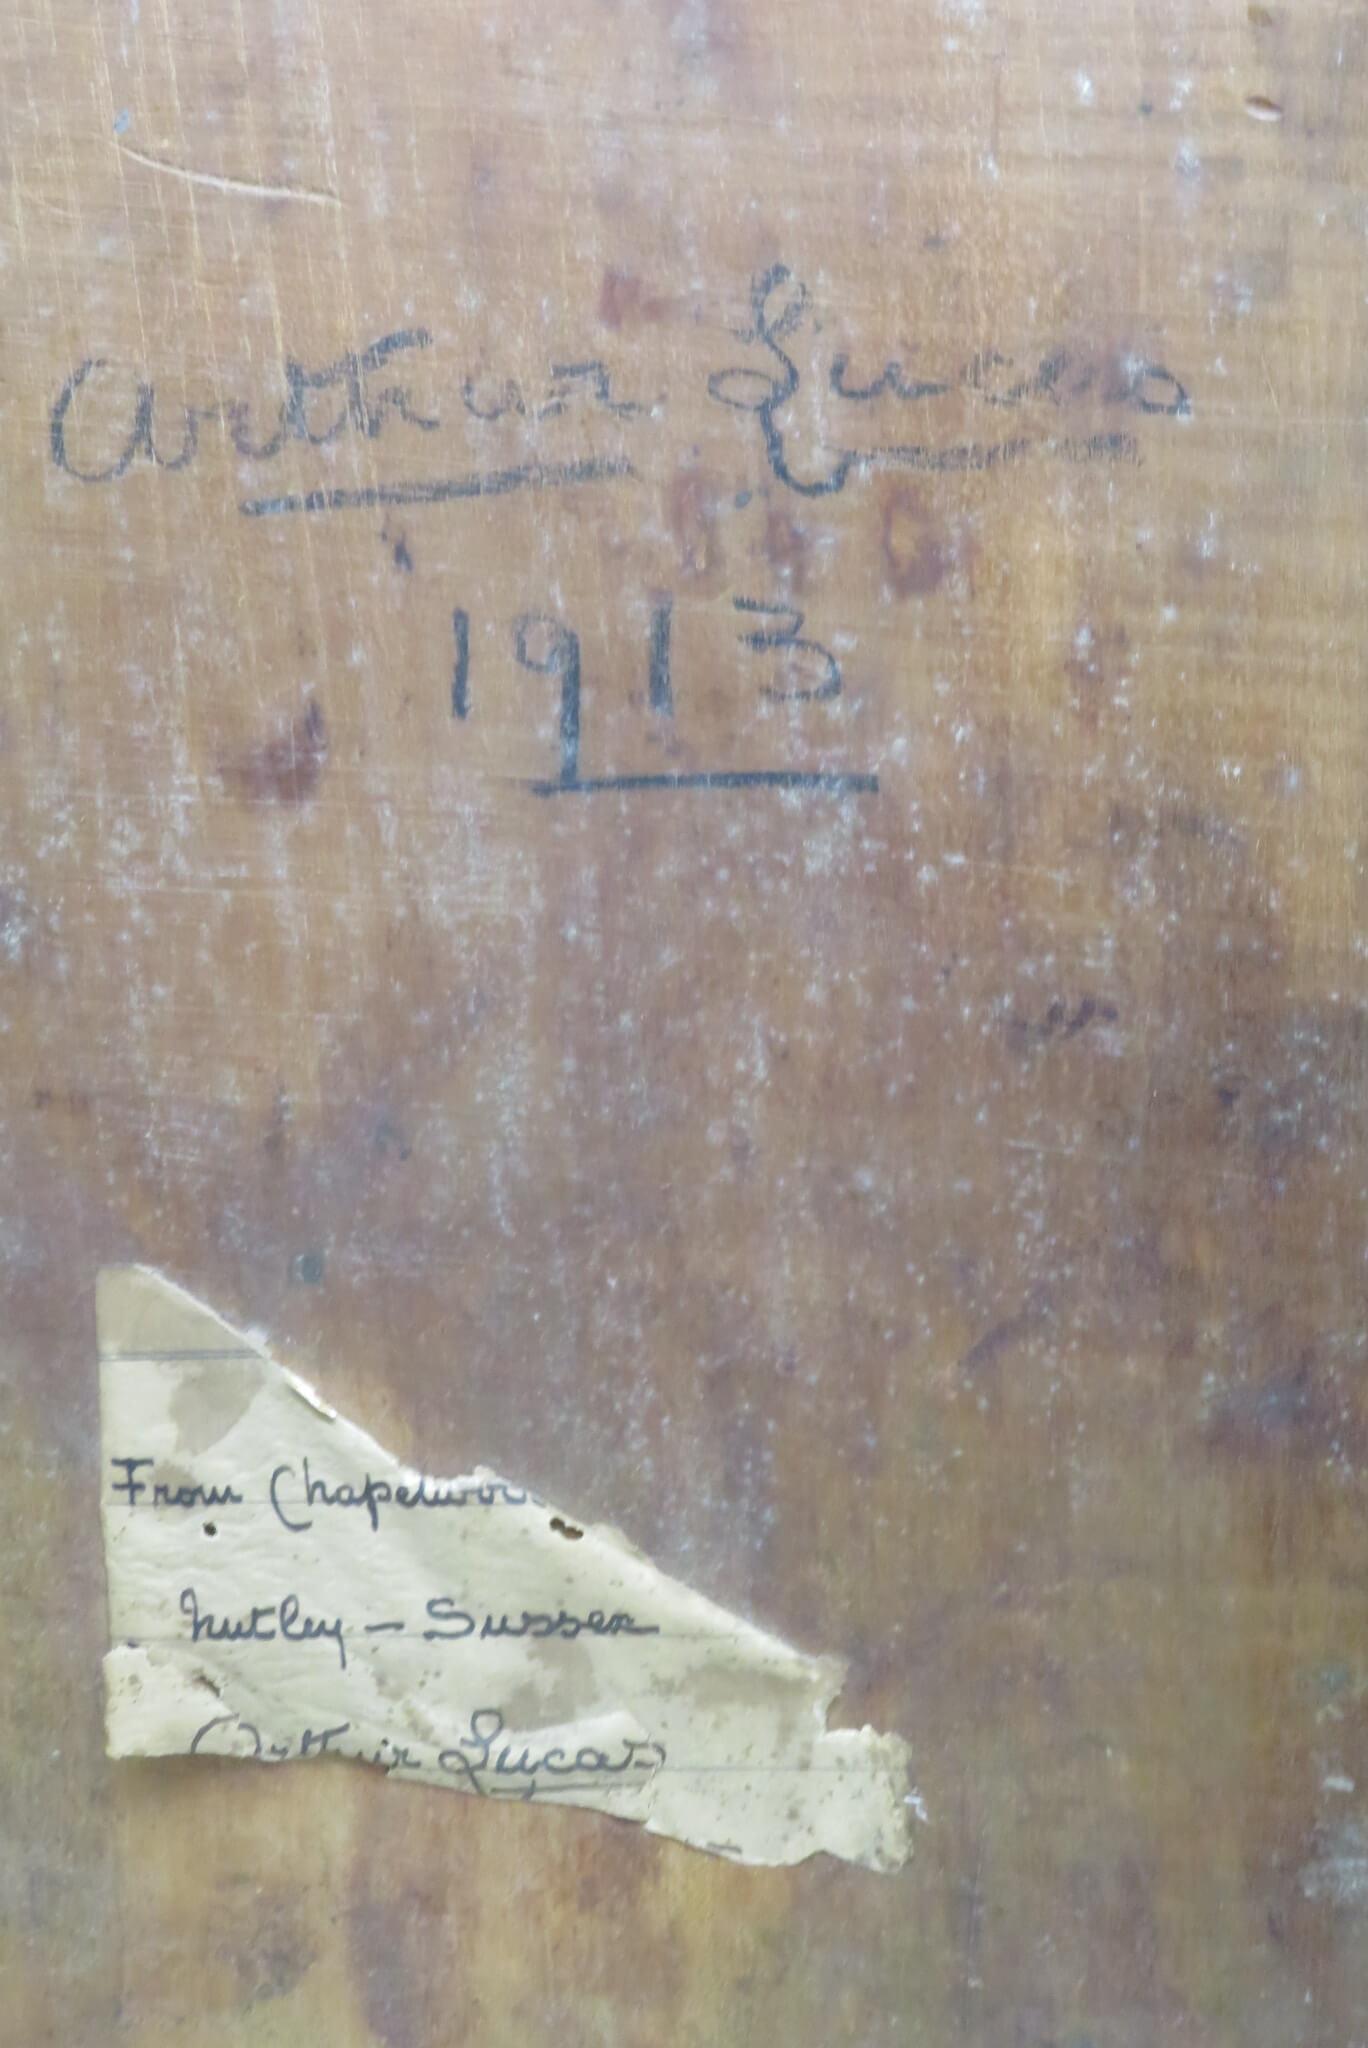 Arthur Lucas
1913
From Chapelwoo
Nutley - Sussex
Arthur Lucas